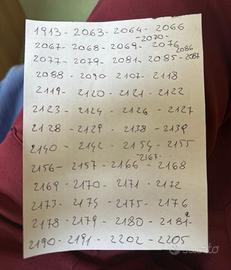 1913 - 2063 - 2064 - 2066
- 2070 -
2067 - 2068 - 2069 - 2076
2086
2077 - 2079 - 2081 - 2085 - 2087
2088 - 2090 - 2107 - 2118
2119 - 2120 - 2121 - 2122
2123 - 2124 - 2126 - 2127
2128 - 2129 - 2138 - 2139
2140 - 2142 - 2154 - 2155
2167 -
2156 - 2157 - 2166 - 2168
2169 - 2170 - 2171 - 2172
2173 - 2174 - 2175 - 2176
2178 - 2179 - 2180 - 2181
2190 - 2191 - 2202 - 2205
subito